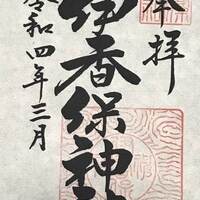 奉拝
伊香保神
令和四年三月